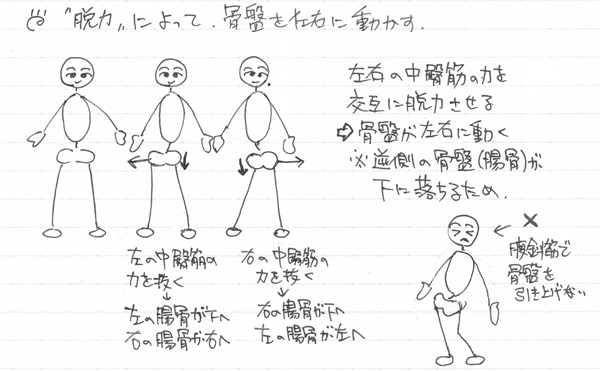 "脱力"によって、骨盤を左右に動かす.
左右の中臀筋の力を
交互に脱力させる
⇨骨盤が左右に動く
※逆側の骨盤(腸骨)が
下に落ちるため.
左の中臀筋の
力を抜く
↓
左の腸骨が下へ
右の腸骨が右へ
右の中臀筋の
力を抜く
↓
右の腸骨が下へ
左の腸骨が左へ
×
腹斜筋で
骨盤を
引き上げない